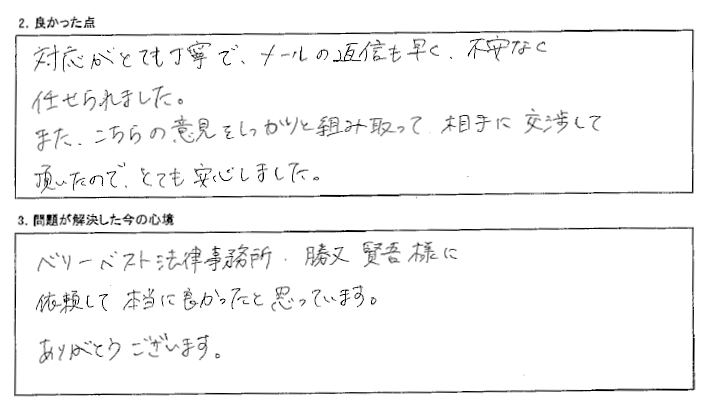 2. 良かった点
対応がとても丁寧で、メールの返信も早く、不安なく
任せられました。
また、こちらの意見をしっかりと組み取って、相手に交渉して
頂いたので、とても安心しました。
3. 問題が解決した今の心境
ベリーベスト法律事務所、勝又 賢吾様に
依頼して本当に良かったと思っています。
ありがとうございます。